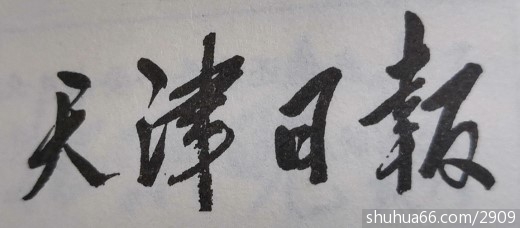 天津日报
shuhua66.com/2909